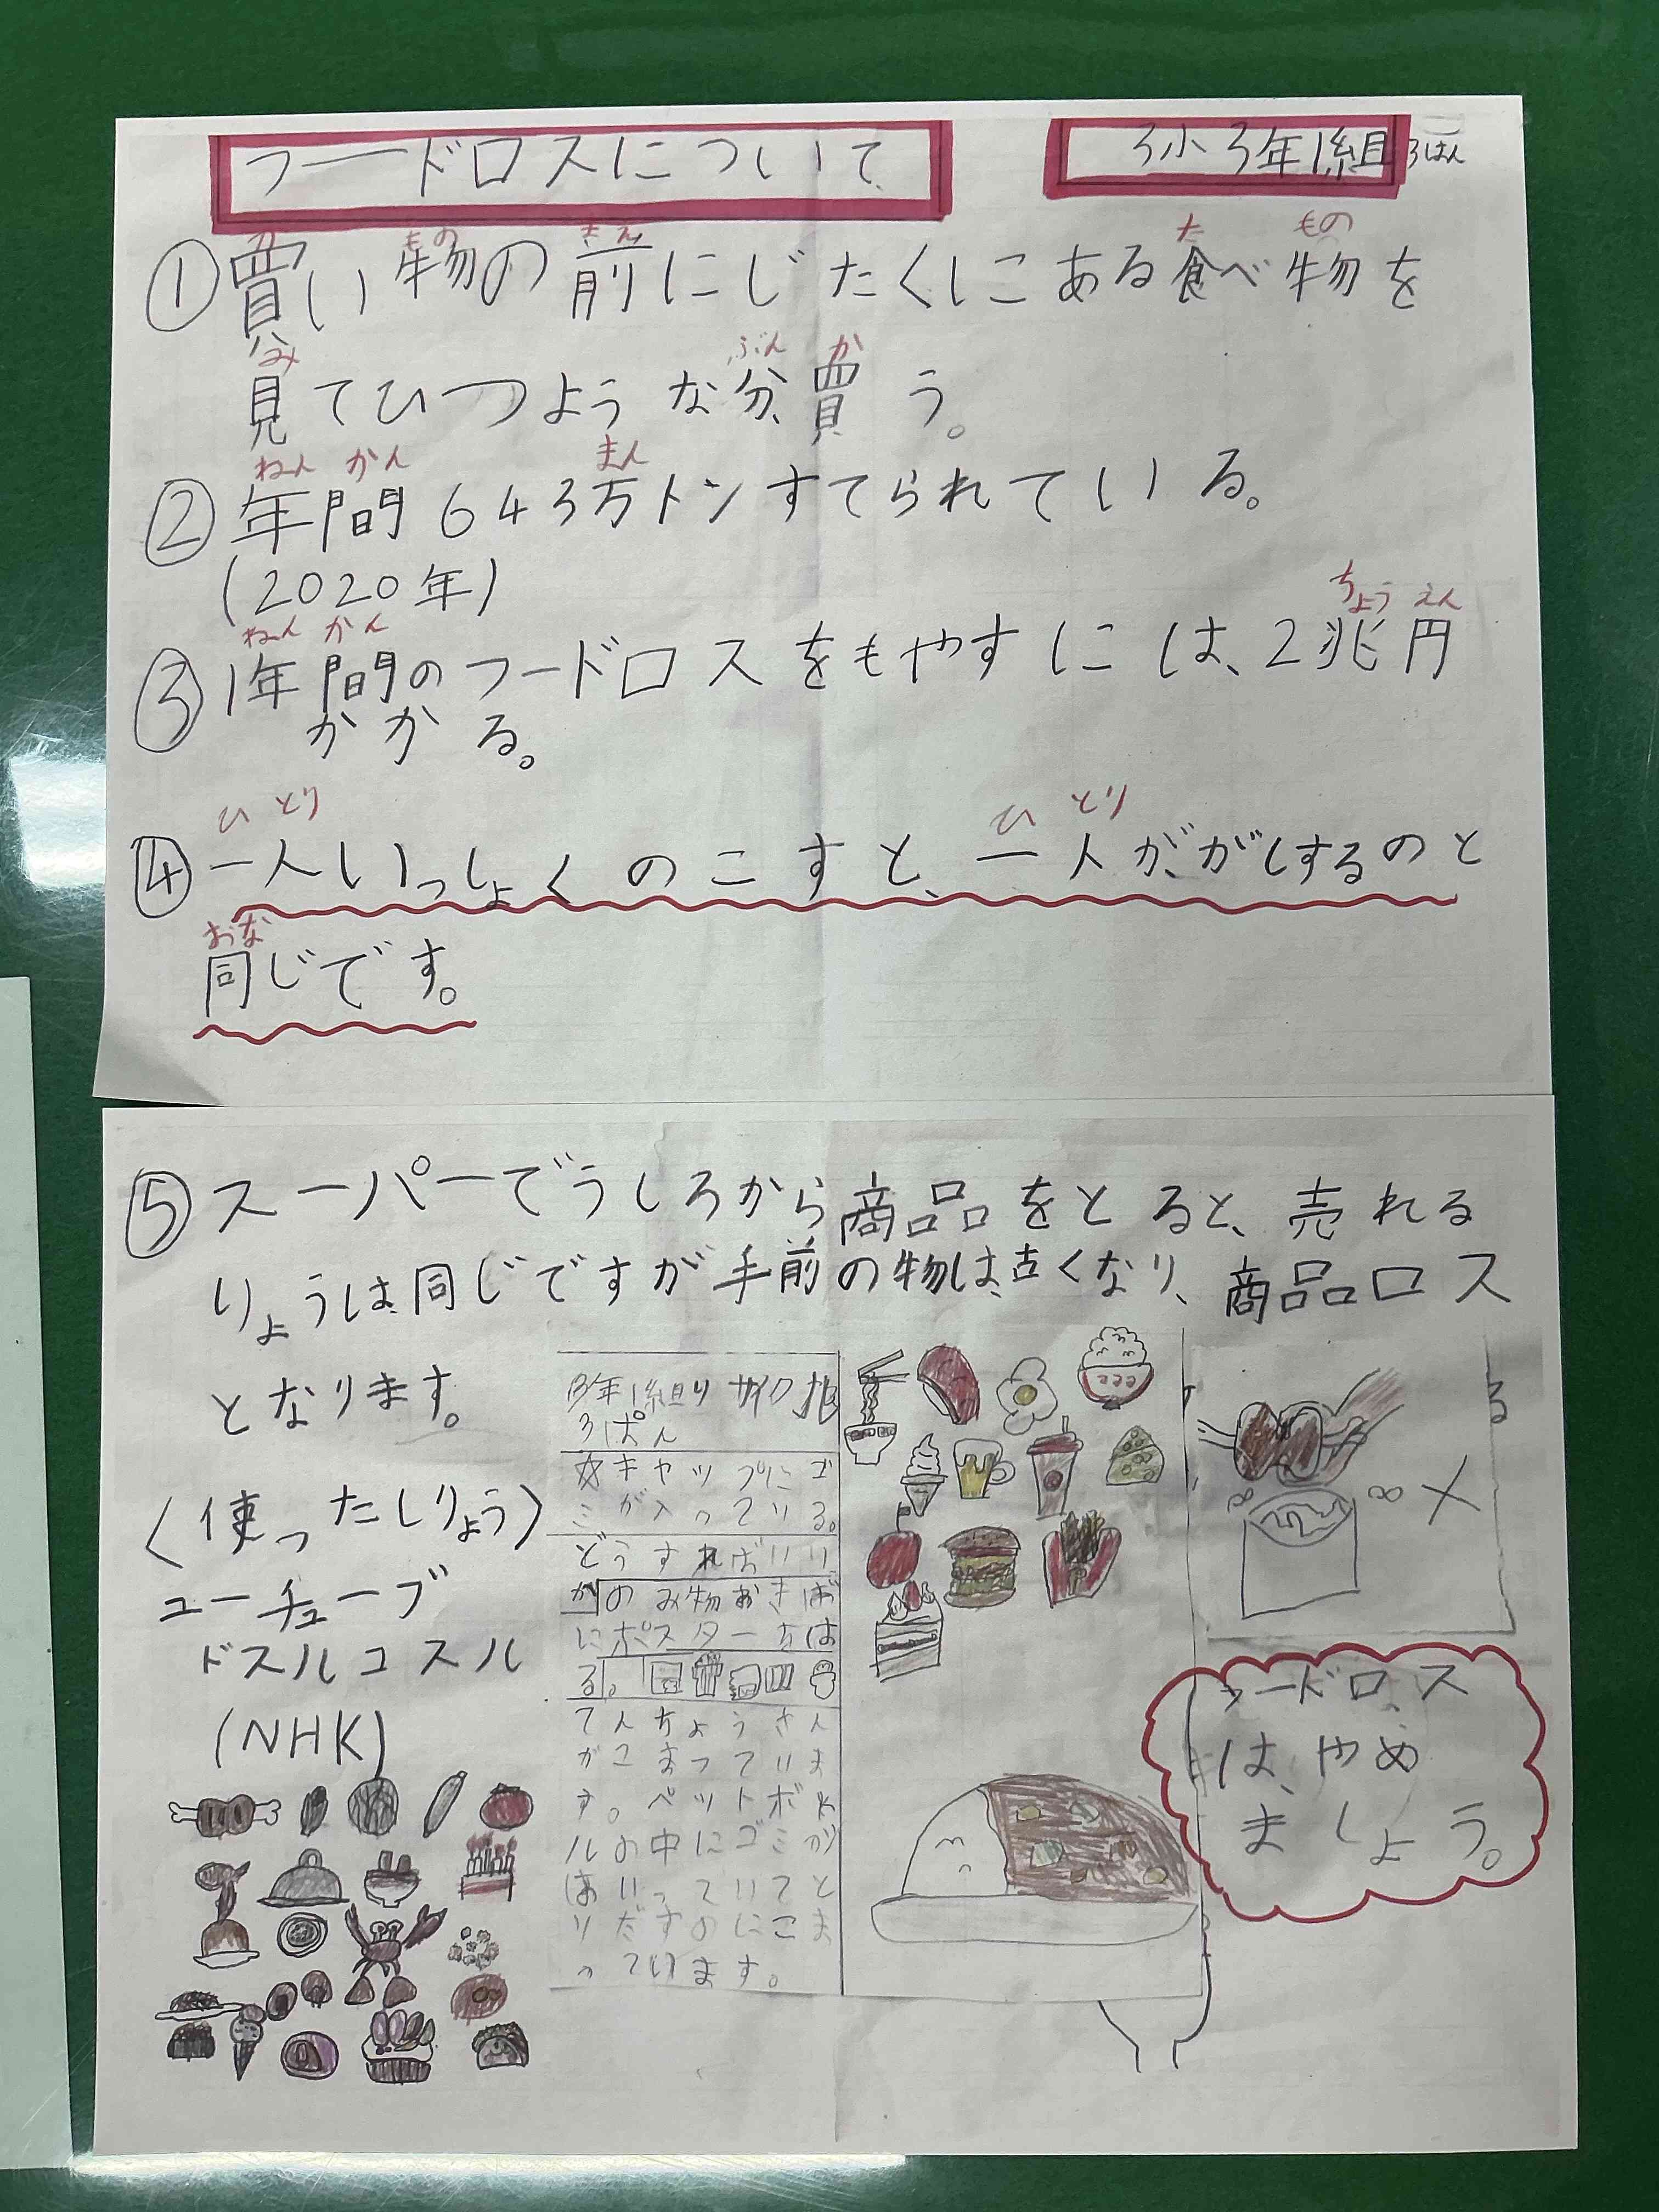 フードロスについて
3小3年1組3はん
①買い物の前にじたくにある食べ物を
見てひつような分、買う。
②年間643万トンすてられている。
(2020年)
③1年間のフードロスをもやすには、2兆円
かかる。
④一人いっしょくのこすと、一人ががしするのと
同じです。
⑤スーパーでうしろから商品をとると、売れる
りょうは同じですが手前の物は、古くなり、商品ロス
となります。
〈使ったしりょう〉
ユーチューブ
ドスルコスル
(NHK)
3年1組リサイクル
3ぱん
☆キャップにゴ
ミが入っている。
どうすればいい
か のみ物おきば
にポスターをは
る。
てんちょうさん
がこまっていま
す。ペットボト
ルの中にゴミが
はいっていてと
りだすのにこま
っています。
フードロス
は、やめ
ましょう。